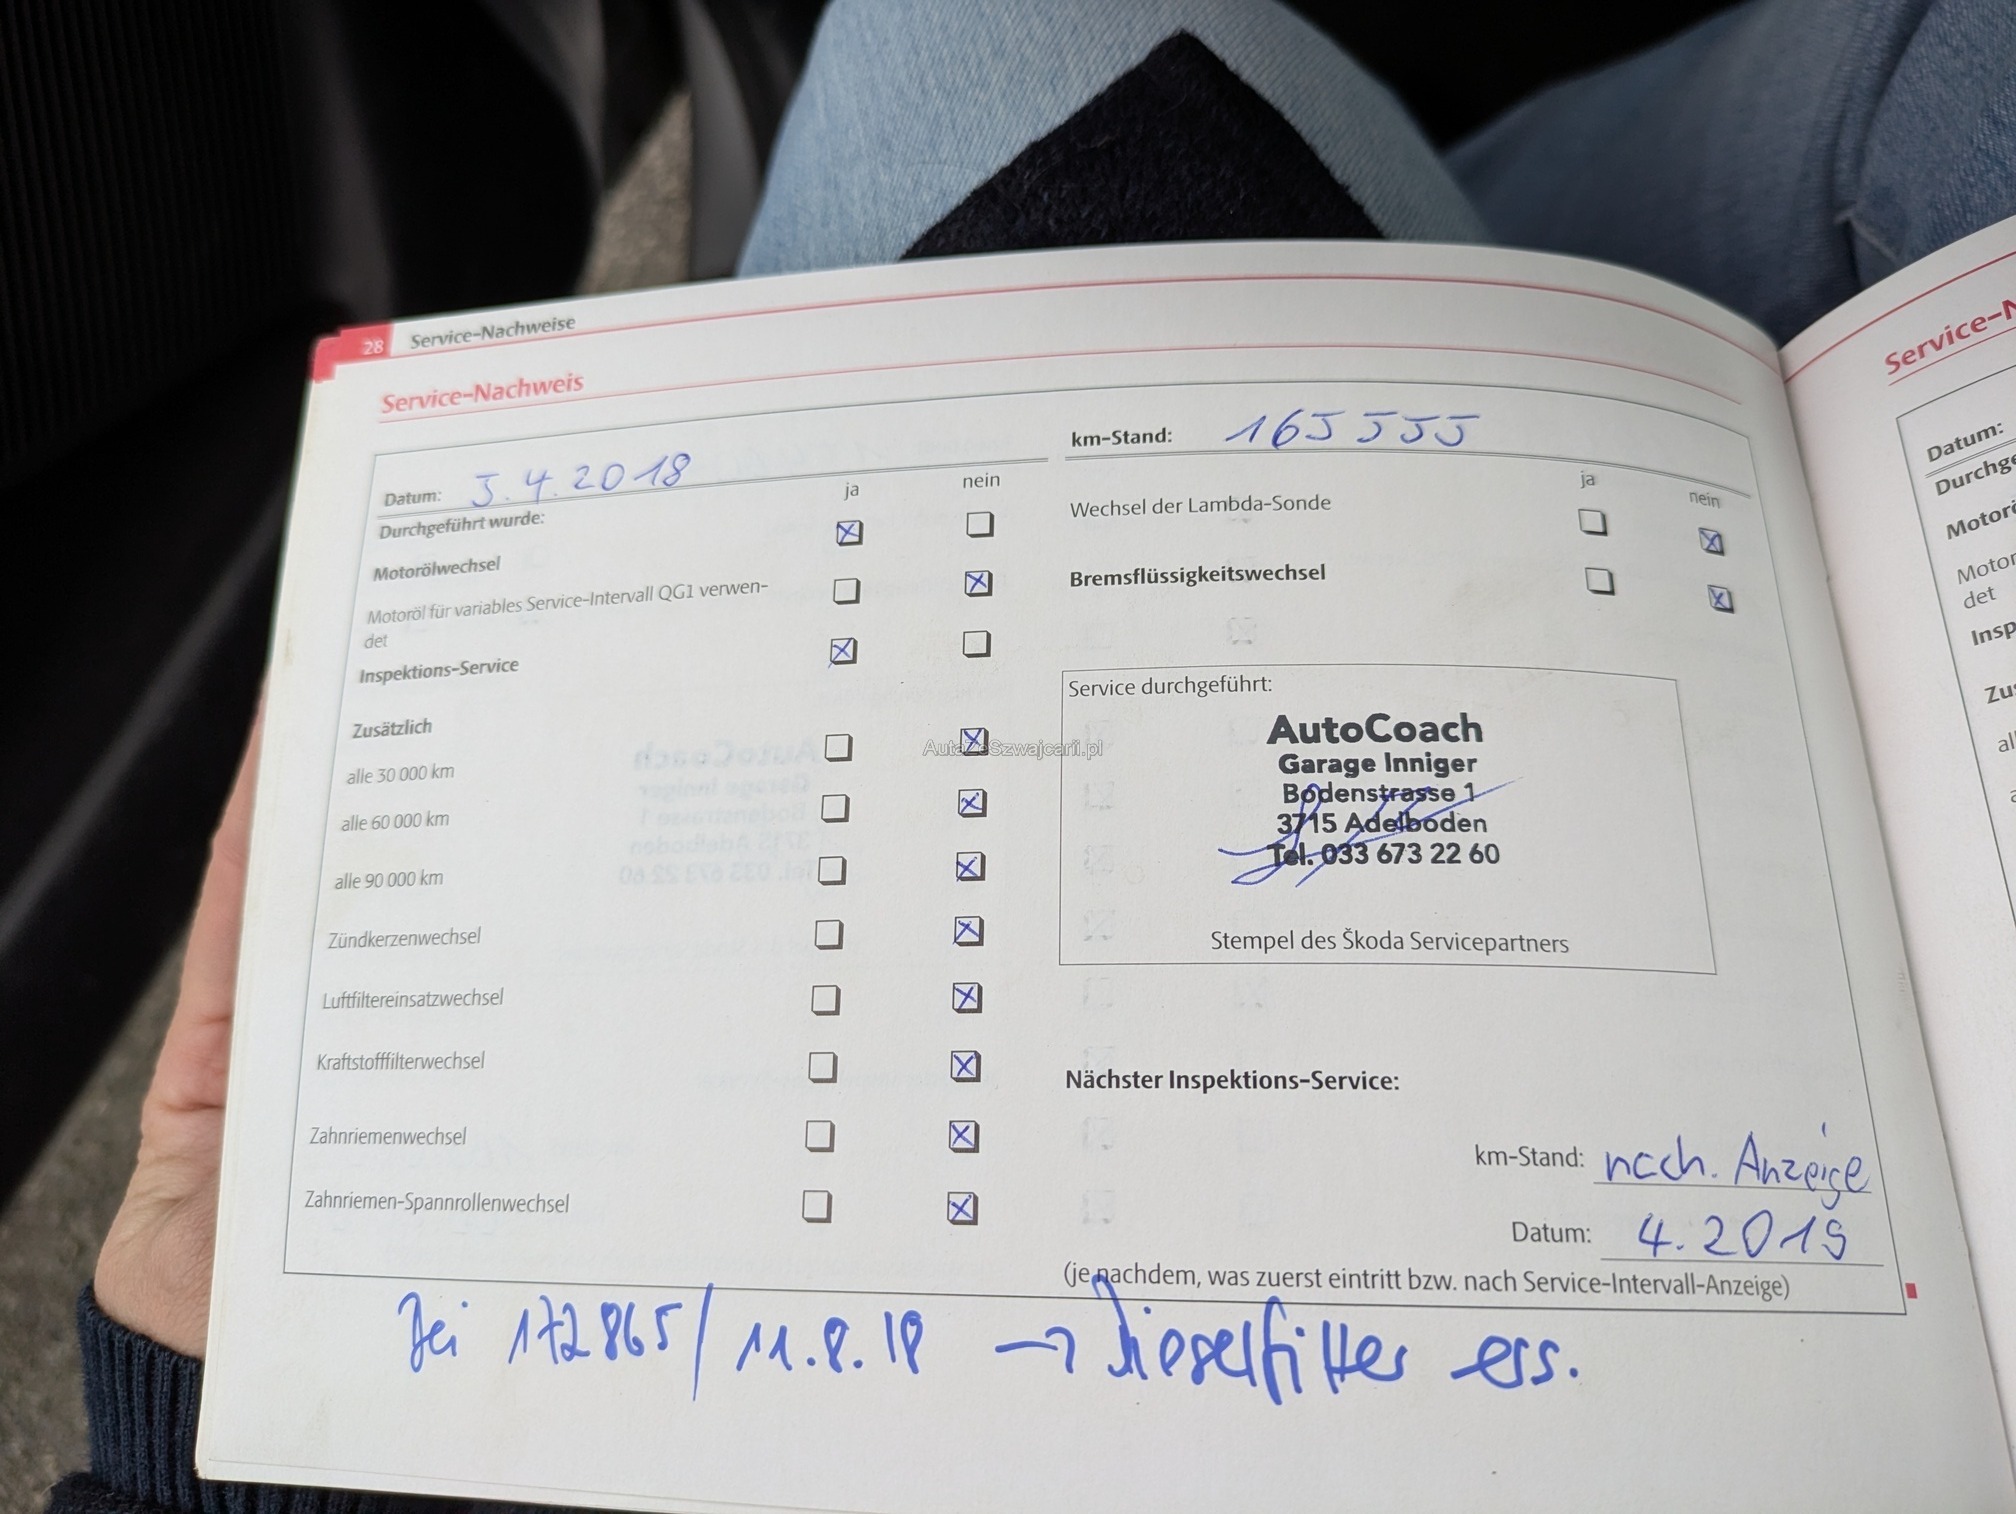 28 Service-Nachweise
Service-Nachweis
Datum: 5.4.2018
ja nein
Durchgeführt wurde:
Motorölwechsel
Motoröl für variables Service-Intervall QG1 verwen-
det
Inspektions-Service
Zusätzlich
alle 30 000 km
alle 60 000 km
alle 90 000 km
Zündkerzenwechsel
Luftfiltereinsatzwechsel
Kraftstofffilterwechsel
Zahnriemenwechsel
Zahnriemen-Spannrollenwechsel
km-Stand: 165 555
ja nein
Wechsel der Lambda-Sonde
Bremsflüssigkeitswechsel
Service durchgeführt:
AutoCoach
Garage Inniger
Bodenstrasse 1
3715 Adelboden
Tel. 033 673 22 60
Stempel des Škoda Servicepartners
Nächster Inspektions-Service:
km-Stand: nach. Anzeige
Datum: 4.2019
(je nachdem, was zuerst eintritt bzw. nach Service-Intervall-Anzeige)
Bei 172865 / 11.8.18 → Dieselfilter ers.
AutaZeSzwajcarii.pl
Service-N
Datum:
Durchge
Motorö
Motor
det
Insp
Zus
al